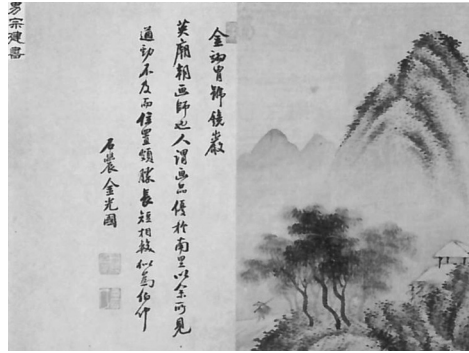 金翊胄號鏡巖
英廟朝画師也人謂画品優於南里以余所見
遒勁不及而位置頗勝長短相較似爲伯仲
石農金光國
男宗建書